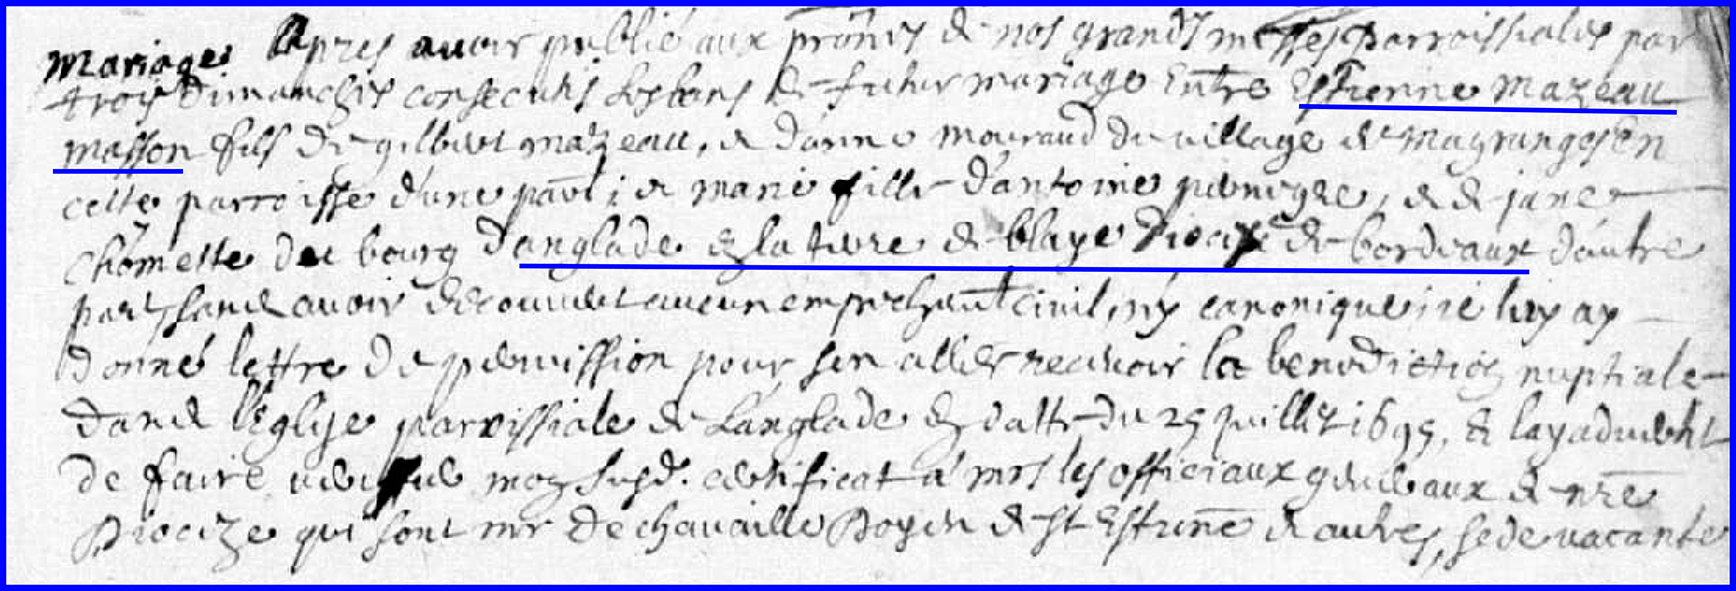 mariage Apres avoir publié aux prônes de nos grands messes parroissiales par
trois dimanches consecutifs les bans de futur mariage entre Estienne mazeau
masson fils de gilbert mazeau, & d'anne mouraud du village de magranges en
cette parroisse d'une part ; & marie fille d'antoine & de jane
chomette du bourg d'anglade en la terre de blaye Diocize de bordeaux d'autre
part sans avoir decouvert aucun empechent civil, ny canonique je luy ay
donné lettre de permission pour s'en aller recevoir la benediction nuptiale
dans l'Eglise parroissiale de L'anglade en datte du 25 juillet 1695, & lay advertit
de faire mon susd. certificat a mrs les officiaux generaux de nre
Diocize qui sont mr de chavaille Doyen de st Estienne & autres, sede vacante